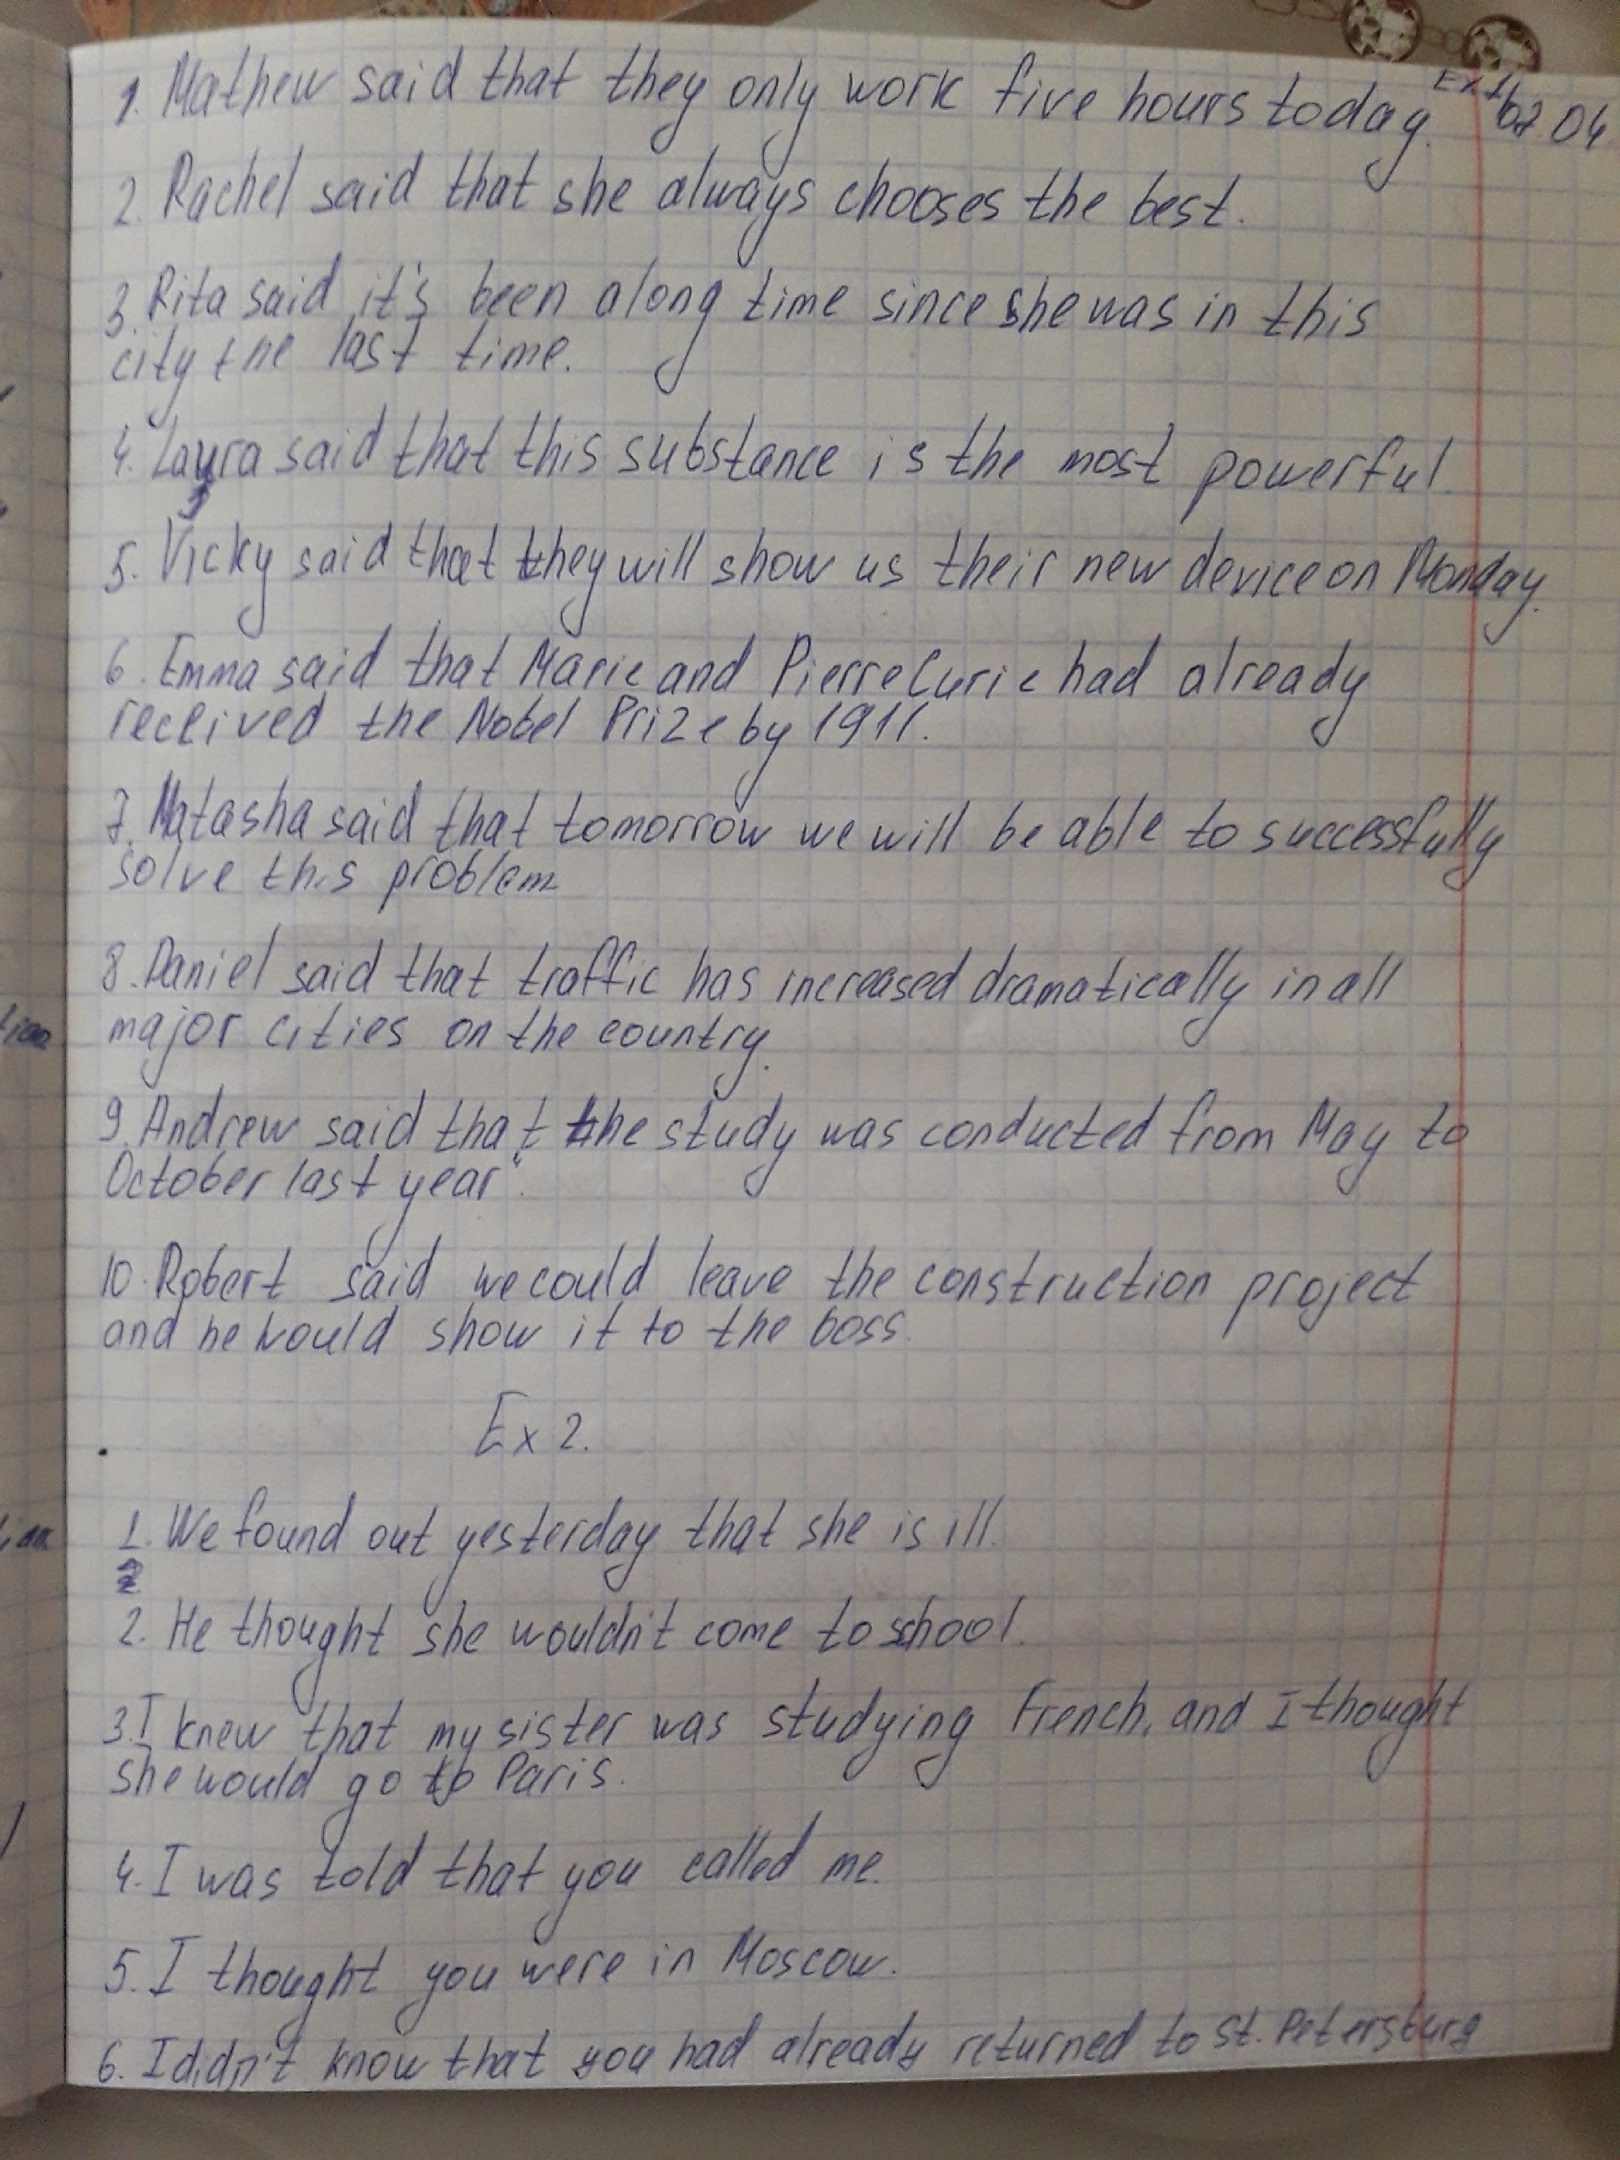 Ex 1 07 04
1. Mathew said that they only work five hours today.
2. Rachel said that she always chooses the best.
3. Rita said it's been along time since she was in this
city the last time.
4. Laura said that this substance is the most powerful.
5. Vicky said that they will show us their new device on Monday.
6. Emma said that Marie and Pierre Curie had already
received the Nobel Prize by 1911.
7. Natasha said that tomorrow we will be able to successfully
solve this problem
8. Daniel said that traffic has increased dramatically in all
major cities on the country.
9. Andrew said that the study was conducted from May to
October last year".
10. Robert said we could leave the construction project
and he would show it to the boss.
Ex 2.
1. We found out yesterday that she is ill.
2. He thought she wouldn't come to school.
3. I knew that my sister was studying French, and I thought
she would go to Paris.
4. I was told that you called me.
5. I thought you were in Moscow.
6. I didn't know that you had already returned to St. Petersburg